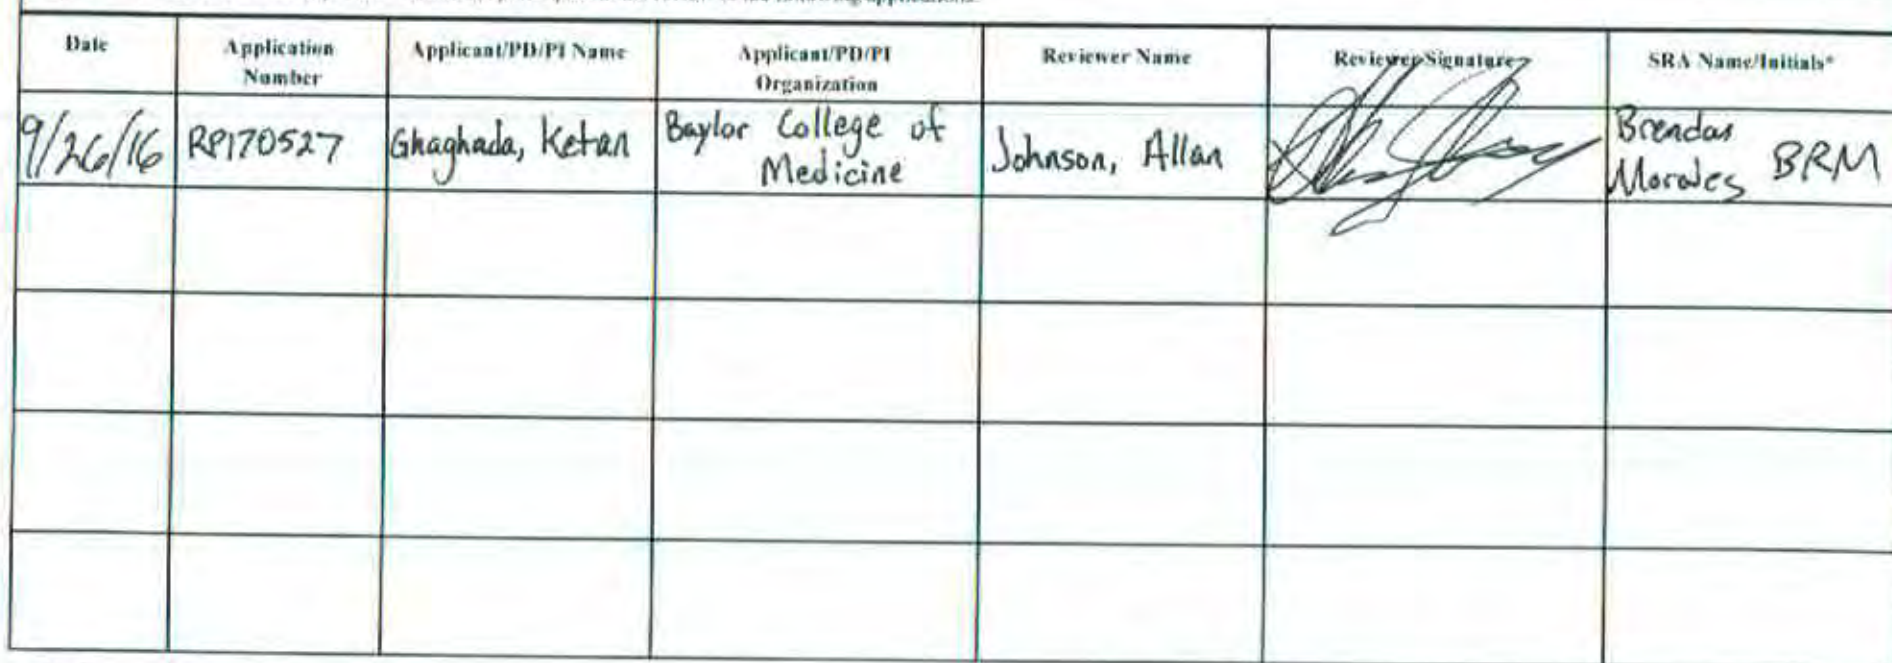 following applications.
Date
Application
Number
Applicant/PD/PI Name
Applicant/PD/PI
Organization
Reviewer Name
Reviewer Signature
SRA Name/Initials*
9/26/16
RP170527
Ghaghada, Ketan
Baylor College of
Medicine
Johnson, Allan
Brendan
Morales BRM